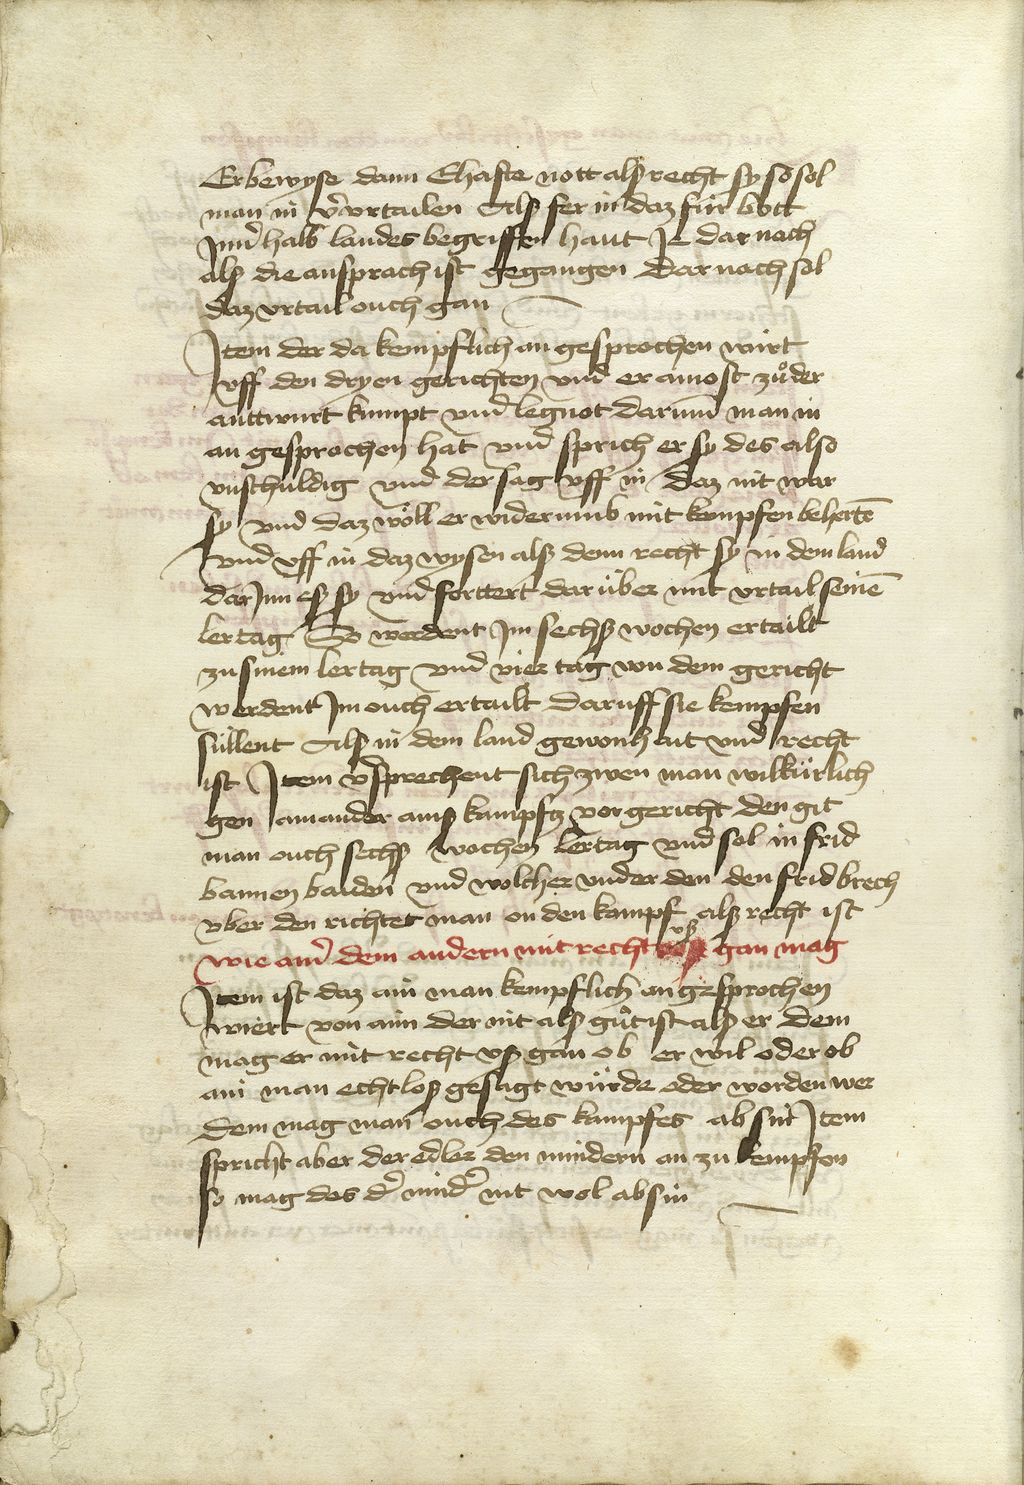 Er bewyse dann Ehafte nott alß recht sy so sol
man in v̾urtailen Alß fer in daz für bott
Jnn̾ halb landes begriffen haut Je dar nach
alß die ansprach ist gegangen Dar nach sol
daz vrtail ouch gan
Jtem der da kempflich an gesprochen wirt
vff den dryen gerichten vnd er amost zů der
anttwurt kumpt vnd legnot darumb man in
an gesprochen hat vnd sprich er sy des also
vnschuldig vnd der sag vff in daz nit war
sy vnd daz wöll er widerumb mit kempfen behertē
vnd vff in daz wysen alß denn recht sy in dem land
dar Jnn eß sy vnd forttert dar über mit vrtail seinē
lertag So werdent Jm sechß wochen ertailt
zu sinem lertag vnd vier tag von dem gericht
werdent Jm ouch ertailt daruff sie kempfen
süllent Alß in dem land gewonhait vnd recht
ist Jtem v̾sprechent sich zwen man wilkürlich
gen ainander ains kampfß vor gericht den git
man ouch sechß wochen lertag vnd sol in frid
bannen baiden vnd wolcher vnder den den frid brech
vber den richtet man on den kampf alß recht ist
wie ain̾ dem andern mit recht vß gan mag
Jtem ist daz ain man kempflich an gesprochen
wiert von aim der nit alß gůt ist alß er dem
mag er mit recht vß gan ob er wil oder ob
ain man echtloß gesagt würde oder worden wer
dem mag man ouch des kampfes ab sin Jtem
spricht aber der edler den mindern an zu kempfen
so mag des d̾ mind̾ nit wol ab sin